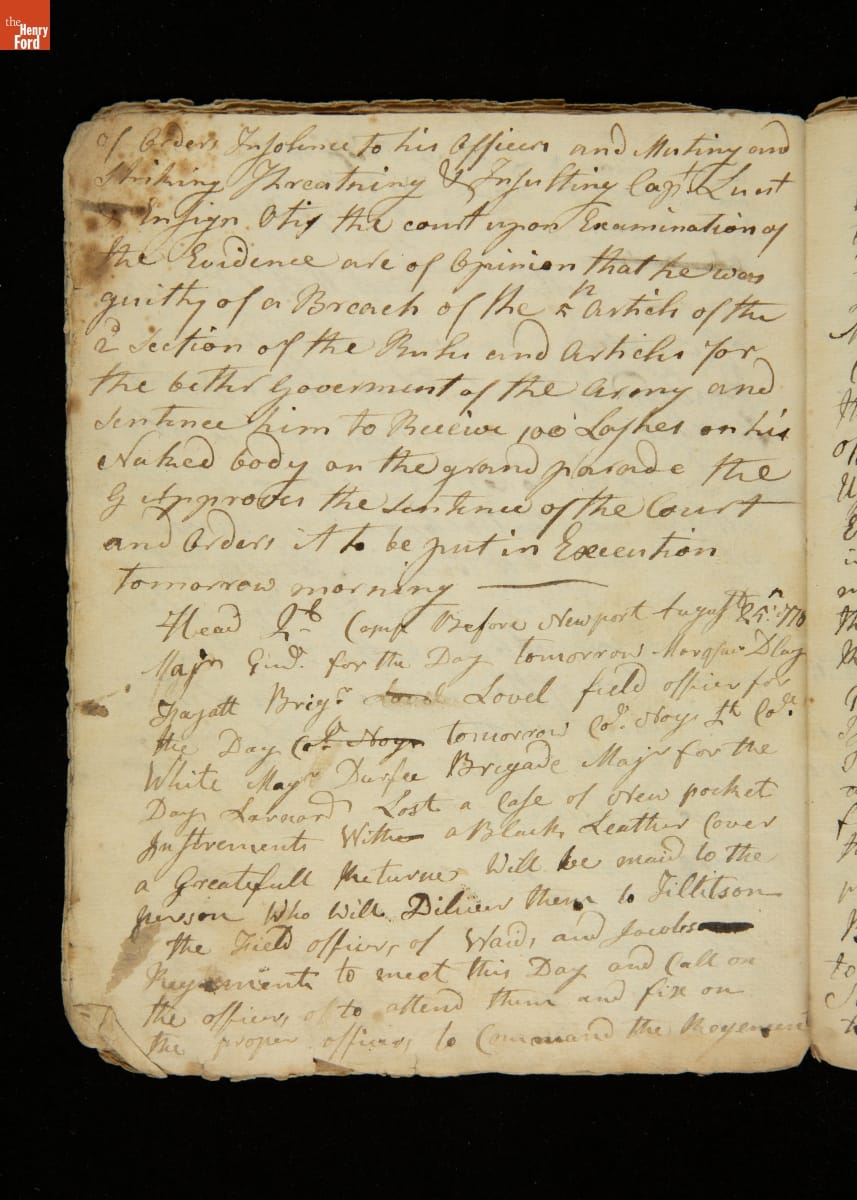 the
Henry
Ford
of Orders Insolence to his Officers and Mutiny and
Striking Threatning & Insulting Capt Lunt
& Ensign Otis the court upon Examination of
the Evidence are of Opinion that he was
guilty of a Breach of the 5th Article of the
2d Section of the Rules and Articles for
the bethr Goverment of the Army and
Sentence him to Receive 100 Lashes on his
Naked body on the grand parade the
G Approves the Sentence of the Court
and Orders it to be put in Execution
tomorrow morning
Head Qrs Camp Before Newport August 25th 1778
Majr Genl for the Day tomorrow Marquis Dlay
Fayatt Brigr Lovel field officer for
the Day Col Noys tomorrow Col Noys Lt Col
White Majr Durfee Brigade Majr for the
Day Larnard Lost a Case of New pocket
Instrements With a Black Leather Cover
a Greatefull Returne Will be maid to the
person Who Will Diliver them to Tillitson
the Field officers of Waids and Jacobs
Regements to meet this Day and Call on
the officers of to attend them and fix on
the proper officers to Command the Regement